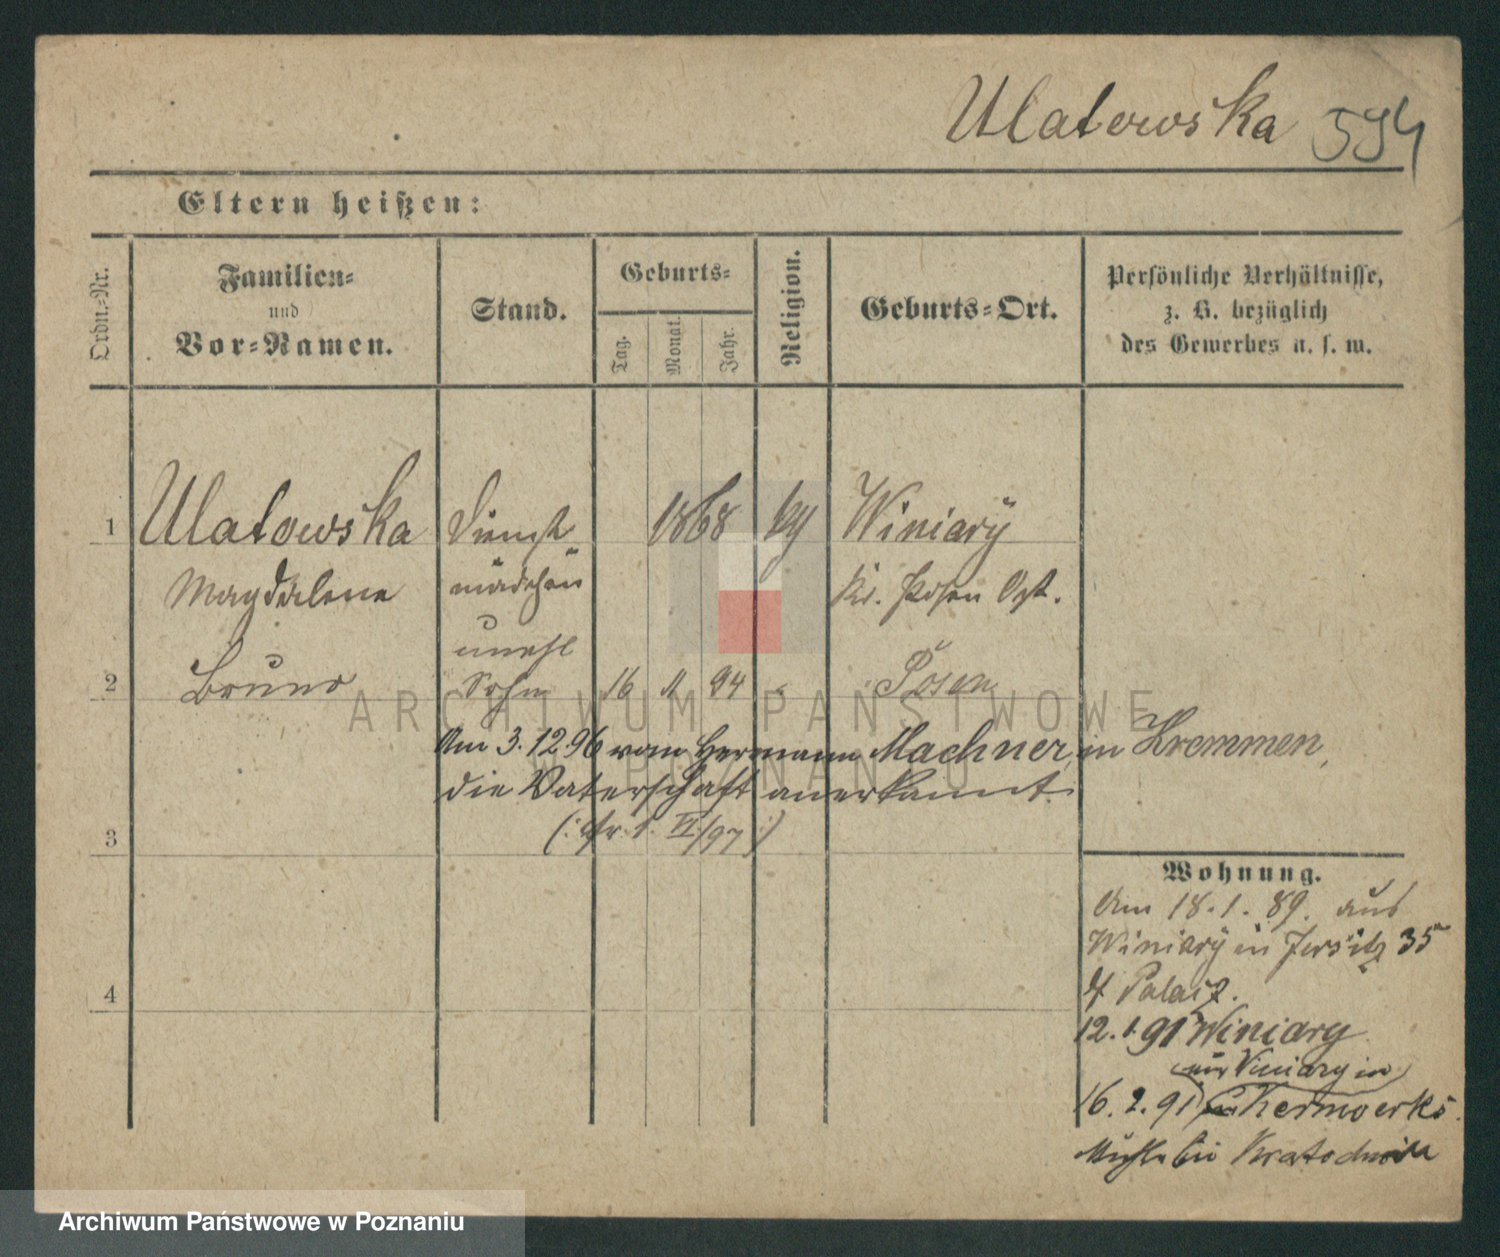 Ulatowska 594
Eltern heißen:
Ordn.-Nr.
Familien-
und
Vor-Namen.
Stand.
Geburts-
Tag.
Monat.
Jahr.
Religion.
Geburts-Ort.
Persönliche Verhältnisse,
z. B. bezüglich
des Gewerbes u. s. w.
1 Ulatowska Dienst 1868 Winiary
Magdalena mädchen Kr. Posen Ost.
unehl
2 Bruno Sohn 16 11 94 Posen
Am 3.12.96 vom Hermann Machner, in Kremmen,
die Vaterschaft anerkannt.
VI/97
3
Wohnung.
Am 18.1.89. aus
Winiary in Jersitz 35
b/ Palacz.
4
12.1.91 Winiary
aus Winiary in
16.2.91
Mühle bei
ARCHIWUM PAŃSTWOWE
W POZNANIU
Archiwum Państwowe w Poznaniu